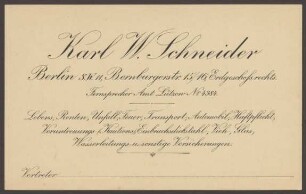 Karl W. Schneider
Berlin S.W. 11, Bernburgerstr. 15/16, Erdgeschoß rechts.
Fernsprecher Amt Lützow Nº 4384.
Lebens, Renten, Unfall, Feuer, Transport, Automobil, Haftpflicht,
Veruntreuungs & Kautions, Einbruchdiebstahl, Vieh, Glas,
Wasserleitungs u. sonstige Versicherungen.
Vertreter